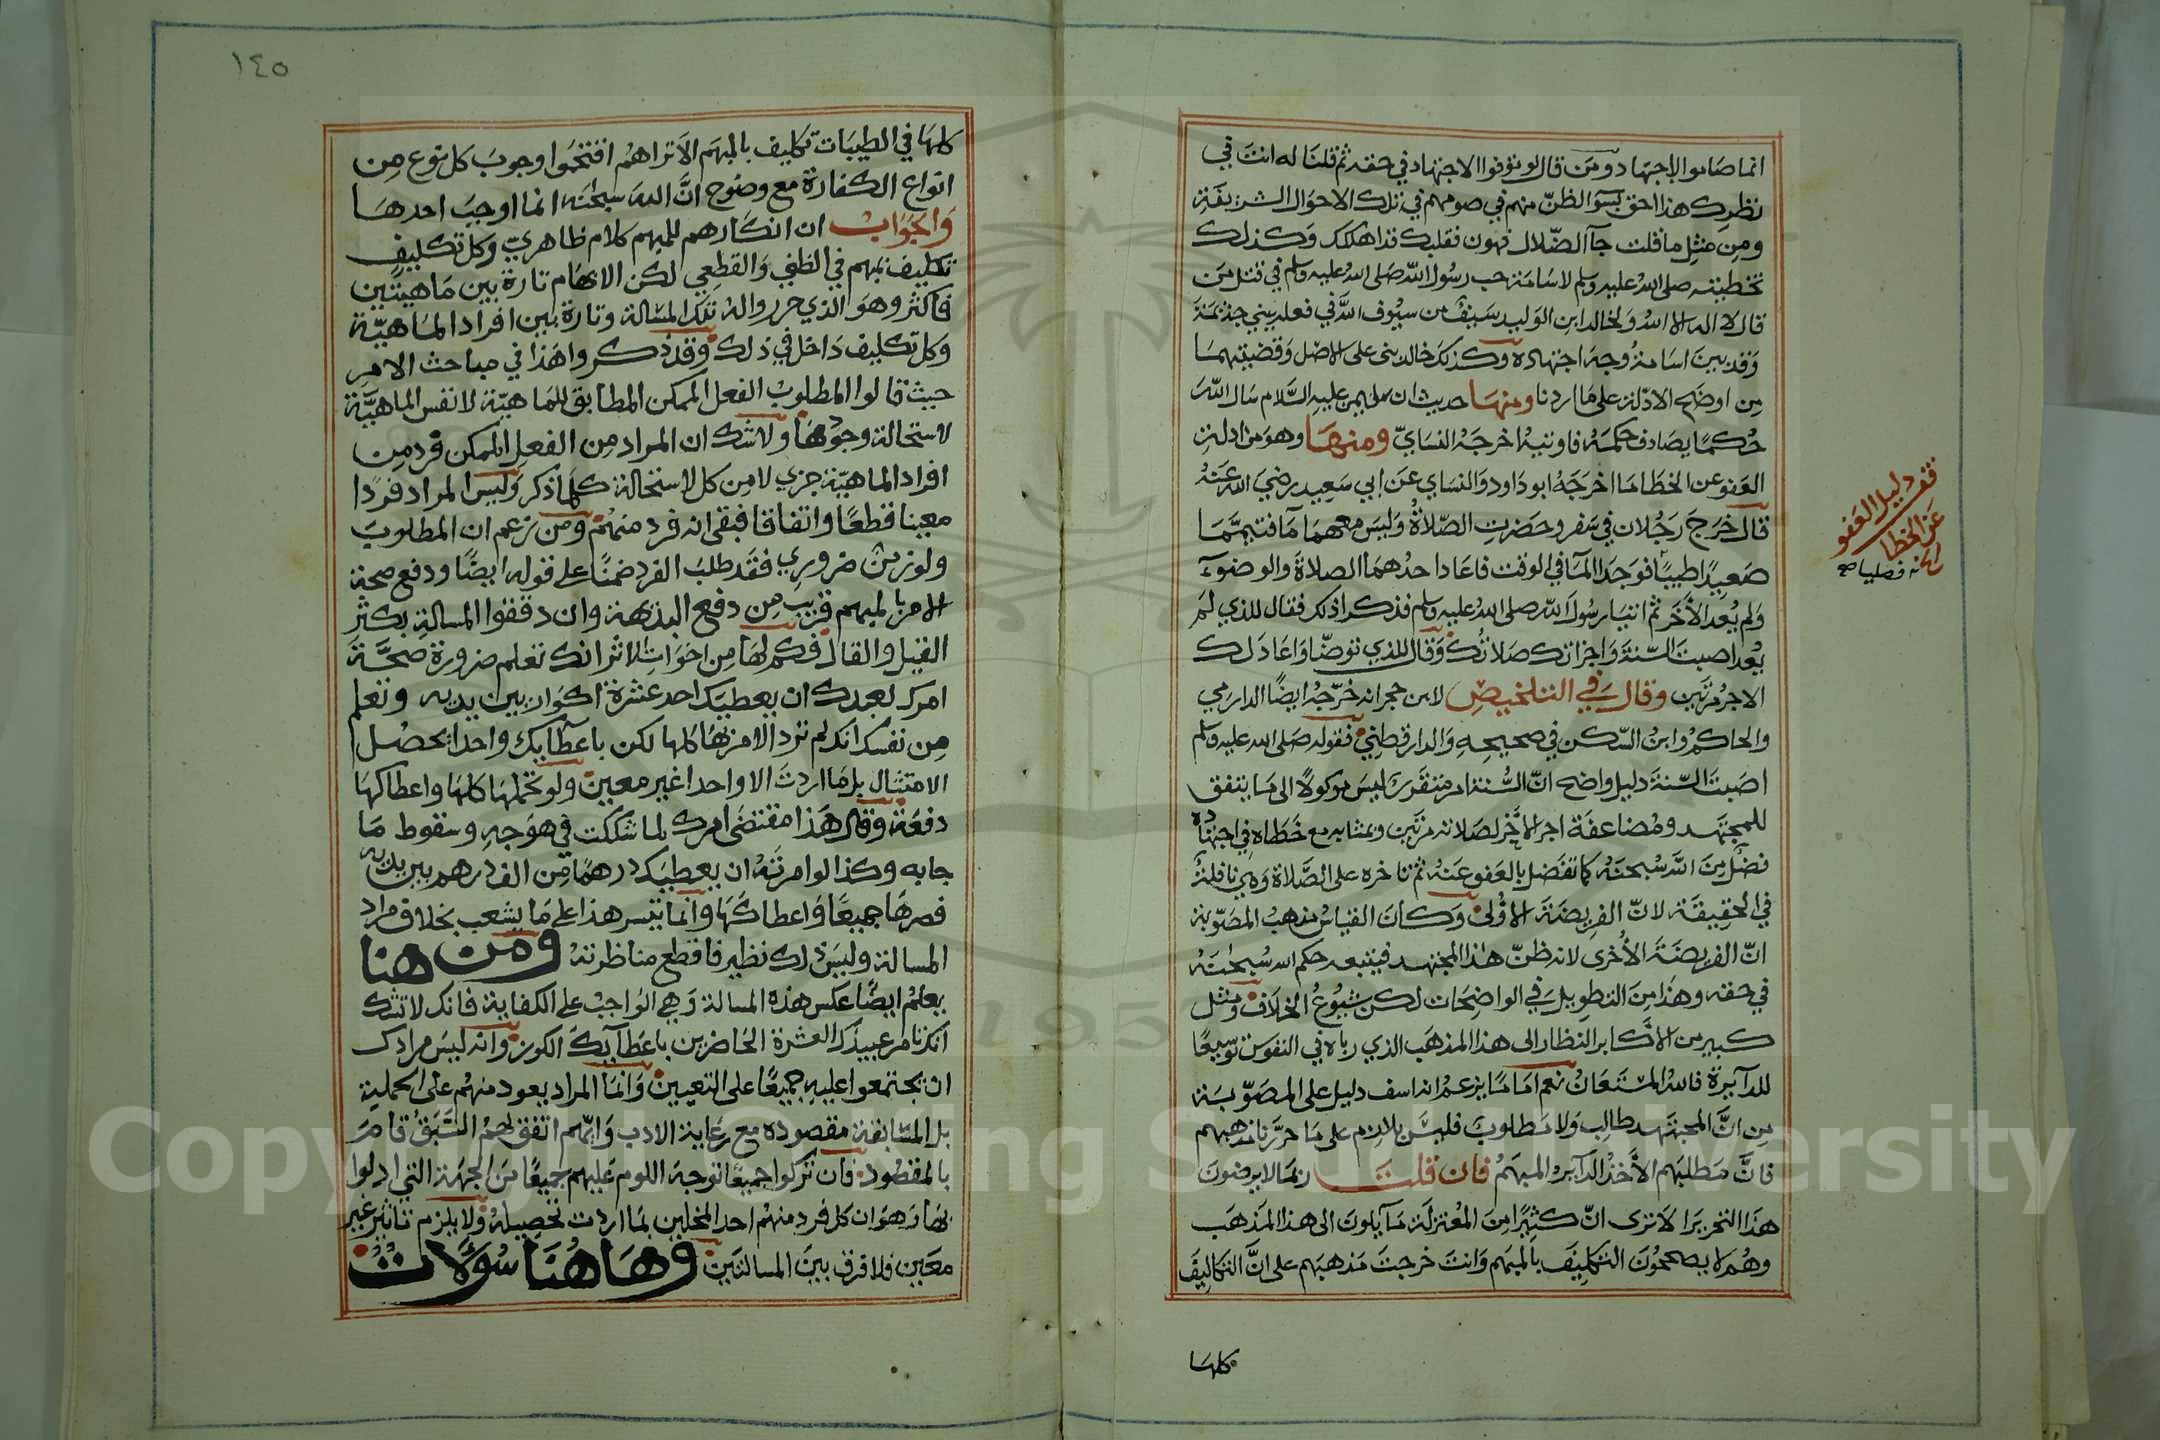 انما صاموا بالاجتهاد ومن قال لو نوفوا الاجتهاد في حقه ثم قلنا له انت في
نظرك هذا احق بسوء الظن منهم في صومهم في تلك الاحوال الشريفة
ومن مثل ما قلت جاء الضلال فهون فقلبك قد اهلكك وكذلك
تخطيته صلى الله عليه وسلم لاسامة حب رسول الله صلى الله عليه وسلم في قتل من
قال لا اله الا الله ولخالد ابن الوليد سيف من سيوف الله في فعله ببني جذيمة
وقد بين اسامة وجه اجتهاده وكذلك خالد بنى على الاصل وقضيتهما
من اوضح الادلة على ما اردنا ومنها حديث ان سليمن عليه السلام سال الله
حكما يصادف حكمه فاوتيه اخرجه النساي ومنها وهو من ادلة
العفو عن الخطا ما اخرجه ابو داود والنساي عن ابي سعيد رضي الله عنه
قال خرج رجلان في سفر وحضرت الصلاة وليس معهما ماء فتيمما
صعيدا طيبا فوجدا الماء في الوقت فاعاد احدهما الصلاة والوضوء
ولم يعد الآخر ثم اتيا رسول الله صلى الله عليه وسلم فذكرا ذلك فقال للذي لم
يعد اصبت السنة واجزاتك صلاتك وقال للذي توضا واعاد لك
الاجر مرتين وقال في التلخيص لابن حجر انه خرجه ايضا الدارمي
والحاكم وابن السكن في صحيحه والدارقطني فقوله صلى الله عليه وسلم
اصبت السنة دليل واضح ان السنة امر متقرر ليس موكولا الى ما يتفق
للمجتهد ومضاعفة اجر الآخر لصلاته مرتين وبمثابه مع خطاه في اجتهاده
فضل من الله سبحنه كما تفضل بالعفو عنه ثم تاخره على الصلاة وهي نافلة
في الحقيقة لان الفريضة الاولى وكان القياس مذهب المصوبة
ان الفريضة الاخرى لانه ظن هذا المجتهد فيتبعه حكم الله سبحنه
في حقه وهذا من التطويل في الواضحات لكن شيوع الخلاف ومثل
كبير من الاكابر النظار الى هذا المذهب الذي رباه في النفوس توسيعا
للدايرة فالله المستعان نعم اما ما يزعم انه اسف دليل على المصوبة
من ان المجتهد طالب ولا مطلوب فليس بلازم على ما حررنا مذهبهم
فان مطلبهم الاخذ الداير المبهم فان قلت ربما لا يرضون
هذا التحرير الا ترى ان كثيرا من المعتزلة مايلون الى هذا المذهب
وهم لا يصححون التكليف بالمبهم وانت خرجت مذهبهم على ان التكاليف
كلها
فف دليل العفو
عن الخطا
١٤٥
كلها في الطيبات تكليف بالمبهم الا تراهم اقتحموا وجوب كل نوع من
انواع الكفارة مع وضوح ان الله سبحنه انما اوجب احدها
والجواب ان انكارهم للمبهم كلام ظاهري وكل تكليف
تكليف بمبهم في الظني والقطعي لكن الابهام تارة بين ماهيتين
فاكثر وهو الذي حرر واله تلك المسالة وتارة بين افراد الماهية
وكل تكليف داخل في ذلك وقد ذكروا هذا في مباحث الامر
حيث قالوا المطلوب الفعل الممكن المطابق للماهية لا نفس الماهية
لاستحالة وجودها ولا شك ان المراد من الفعل الممكن فرد من
افراد الماهية جزي لا من كل لاستحالة كلما ذكر وليس المراد فردا
معينا قطعا واتفاقا فبقي انه فرد منهم ومن زعم ان المطلوب
ولو بزين ضروري فقد طلب الفرد ضمنا على قوله ايضا ودفع صحة
الامر بالمبهم قريب من دفع البديهة وان دققوا المسالة بكثر
القيل والقال فكم لها من اخوات الا ترى انك تعلم ضرورة صحة
امرك لعبدك ان يعطيك احد عشرة اكواز بين يديه وتعلم
من نفسك انك لم ترد الامر بها كلها لكن باعطايك واحدا يحصل
الامتثال بل ما اردت الا واحدا غير معين ولو تحملها كلها واعطاكها
دفعة وقال هذا مقتضى امرك لما شككت في هوجه وسقوط ما
جا به وكذا لو امرته ان يعطيك درهما من الف درهم بين يديه
فصرها جميعا واعطاكها وانما تيسر هذا على ما يشعب بخلاف مراد
المسالة وليس ذلك نظير فاقطع مناظرته ومن هنا
يعلم ايضا عكس هذه المسالة وهي الواجب على الكفاية فانك لا تشك
انك تامر عبيدك العشرة الحاضرين باعطايك الكوز وانه ليس مرادك
ان يجتمعوا عليه جميعا على التعيين وانما المراد يعود منهم على الجملية
بل المسابقة مقصودة مع رعاية الادب وايهم اتفق لهم السبق قام
بالمقصود فان تركوا جميعا توجه اللوم عليهم جميعا من الجهة التي ادلوا
بها وهو ان كل فرد منهم احد المخلين بما اردت تحصيله ولا يلزم تاثير غير
معين فلا فرق بين المسالتين وها هنا سؤالات